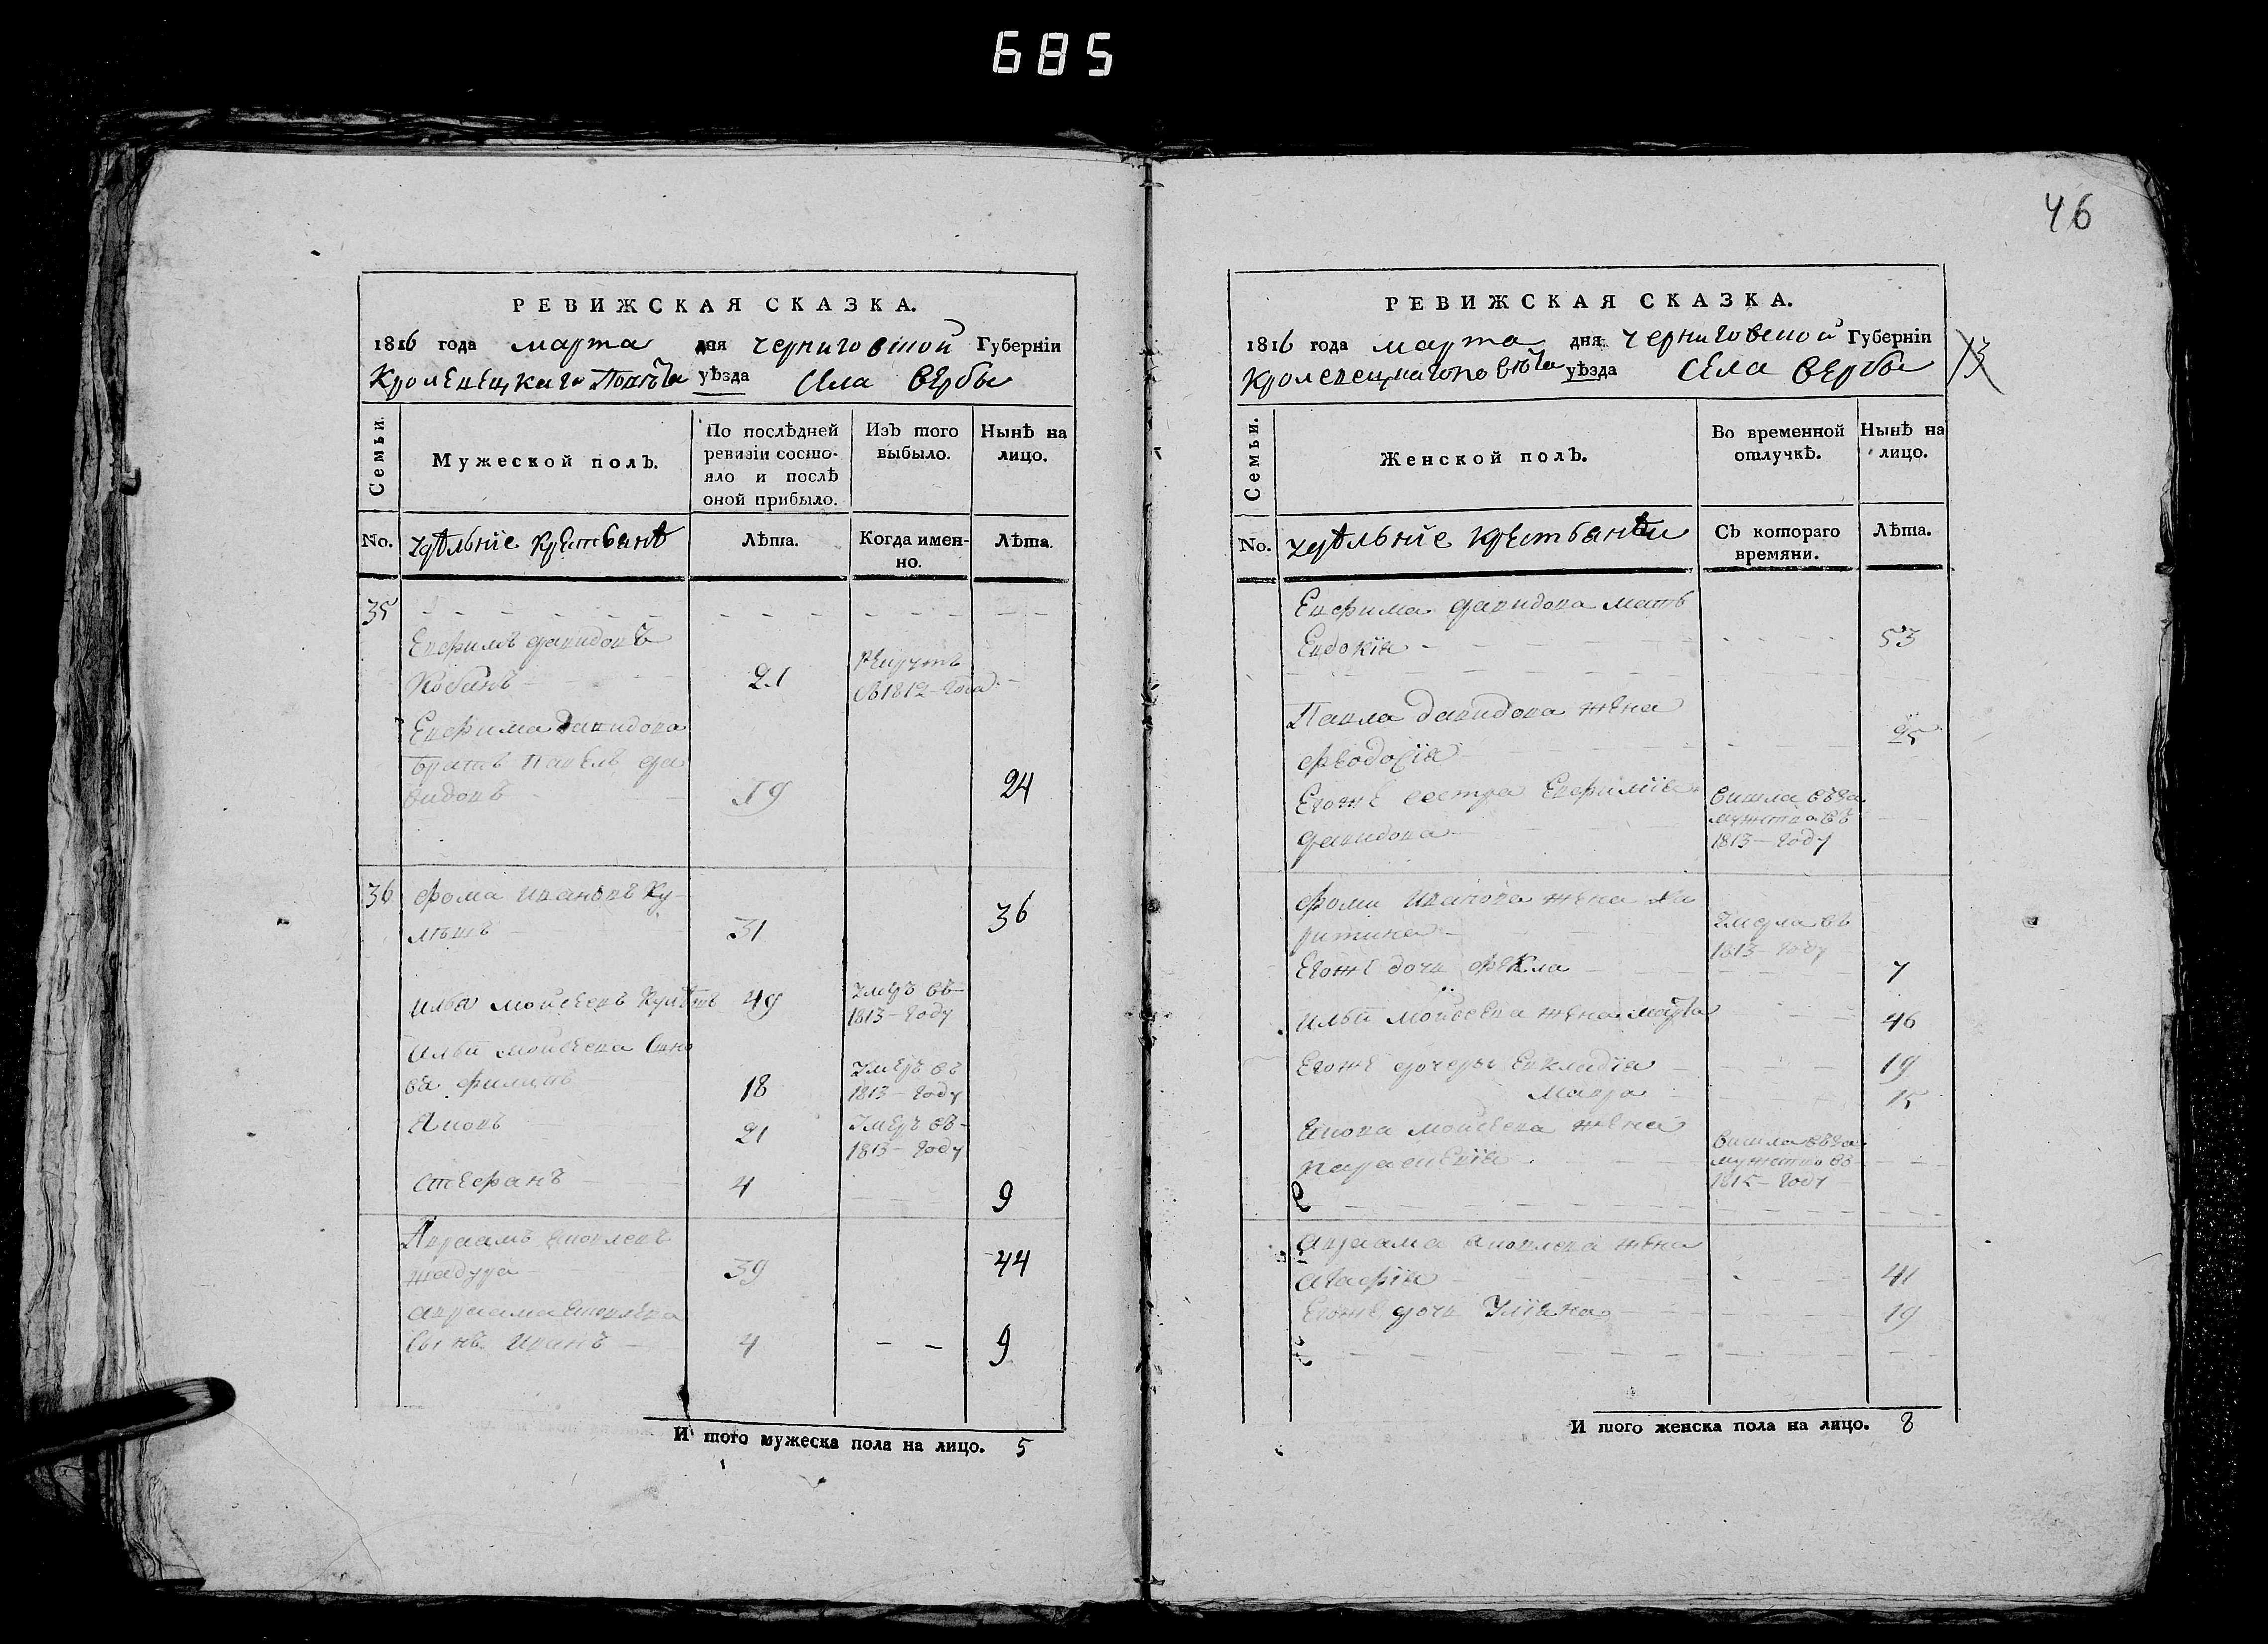 685
46
РЕВИЖСКАЯ СКАЗКА.
1816 года марта дня Черниговской Губерніи
Кролевецкаго Повѣта уѣзда Села Вербы
Семьи.
Мужеской полъ.
По послѣдней ревизіи состояло и послѣ оной прибыло.
Изъ того выбыло.
Нынѣ на лицо.
No. Удѣльніе Крестьянѣ
Лѣта.
Когда именно.
Лѣта.
35
Евфимъ Давидовъ
Кобанъ 21 Рекрутъ
в 1812 года
Евфима Давидова
братъ Павелъ Да
видовъ 19 24
36 Фома Ивановъ Ку
лѣшъ 31 36
Илья Мойсеевъ Кулѣшъ 49 Умеръ въ
1813 году
Ильи Мойсеева Сыно
вя Филипъ 18 Умеръ въ
1813 году
Яковъ 21 Умеръ въ
1813 году
Стефанъ 4 9
Авраамъ Яковлевъ
39 44
Авраама Яковлева
Сынъ Иванъ 4 9
И того мужеска пола на лицо. 5
РЕВИЖСКАЯ СКАЗКА.
1816 года марта дня Черниговской Губерніи
Кролевецкаго повѣта уѣзда Села Вербы 13
Семьи.
Женской полъ.
Во временной отлучкѣ.
Нынѣ на лицо.
No. Удѣльніе Крестьянки
Съ котораго времяни.
Лѣта.
Евфима Давидова мать
Евдокія 53
Павла Давидова жена
Феодосія 25
Егожъ сестра Евфимія
Давидова
вишла въ за
мужство въ
1813 году
Фоми Иванова жена Ха
ритина Умерла въ
1813 году
Егожъ дочь Фекла 7
Ильи Мойсеева жена Марта 46
Егожъ дочеры Евкладія 19
Мавра 15
Якова Мойсеева жена
Параскевія
вишла въ за
мужство въ
1815 году
Авраама Яковлева жена
Агафія 41
Егожъ дочь Уліяна 19
И того женска пола на лицо. 8